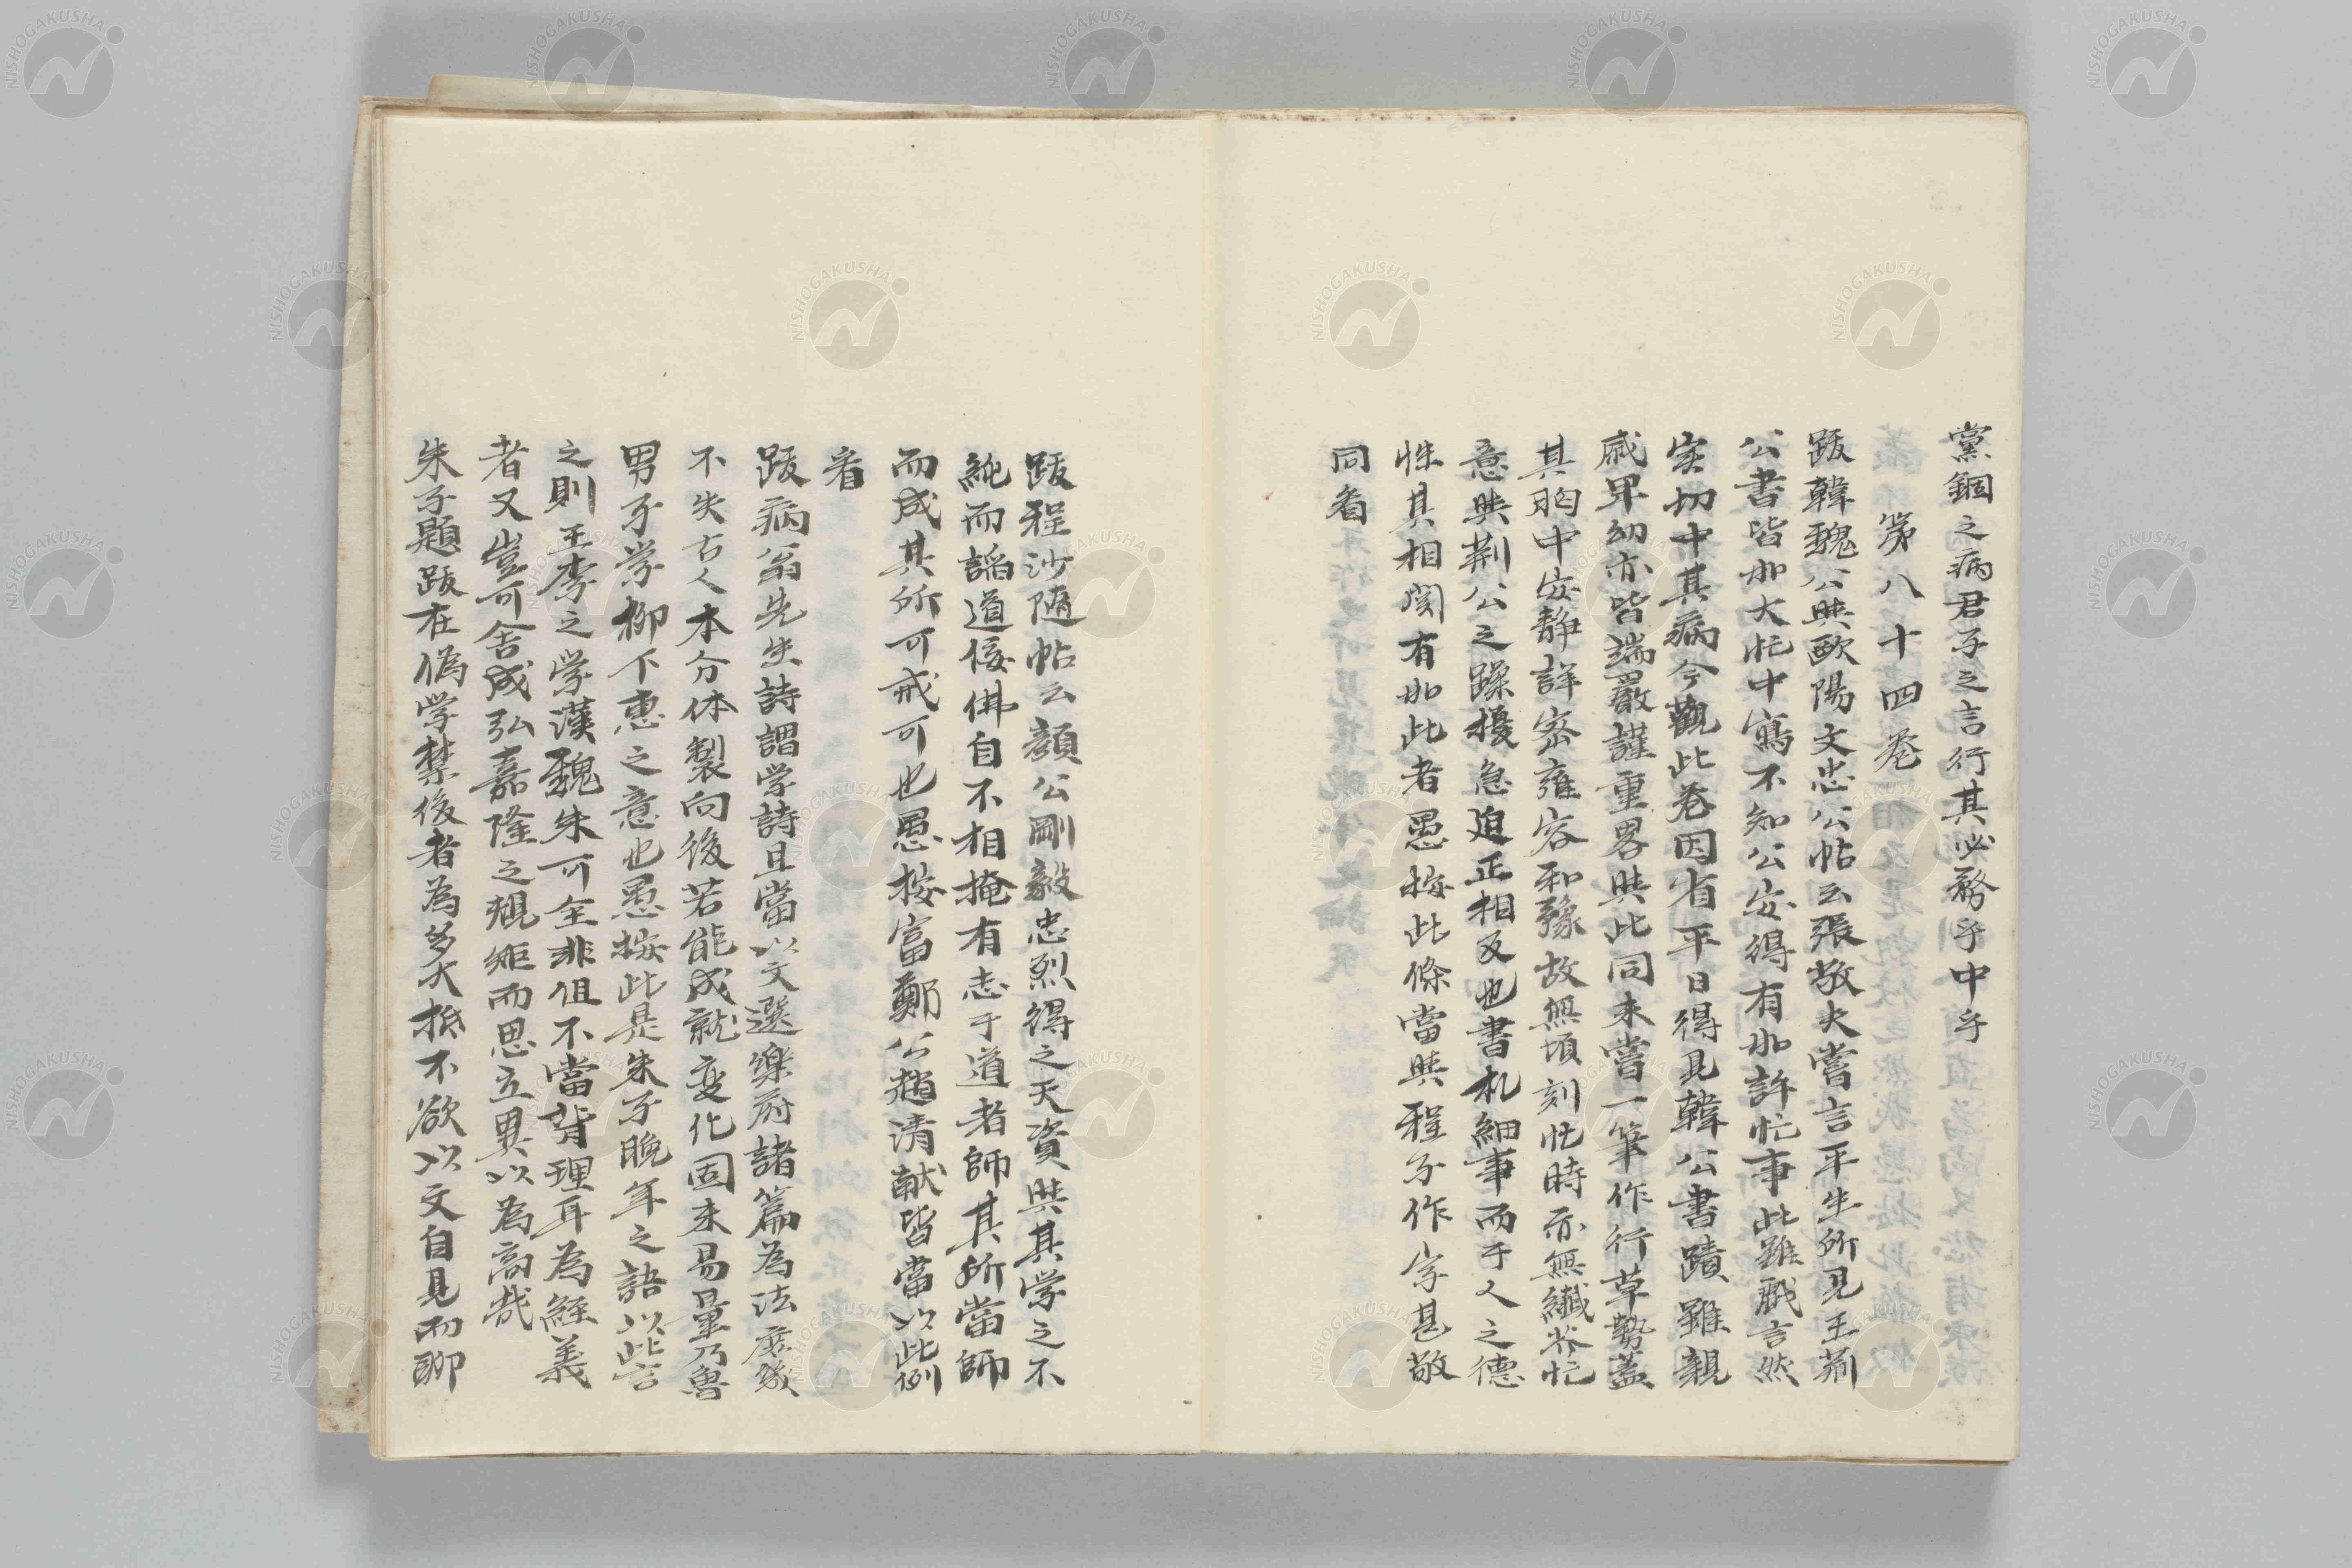 黨錮之病君子之言行其必務乎中乎
第八十四卷
跋韓魏公與歐陽文忠公帖云張敬夫嘗言平生所見王荊
公書皆如大忙中寫不知公安得有如許忙事此雖戲言然
实切中其病今觀此卷因省平日得見韓公書蹟雖親
戚卑幼亦皆端嚴謹重畧與此同未嘗一筆作行草勢蓋
其胸中安靜詳密雍容和豫故無頃刻忙時亦無纖芥忙
意與荊公之躁擾急迫正相反也書札細事而于人之德
性其相関有如此者愚按此條當與程子作字甚敬
同看
跋程沙随帖云顏公剛毅忠烈得之天資與其学之不
純而謟道佞佛自不相掩有志于道者師其所當師
而成其所可戒可也愚按富鄭公趙清献皆當以此例
看
跋病翁先生詩謂学詩且當以文選樂府諸篇為法庶幾
不失古人本分体製向後若能成就変化固未易量乃魯
男子学柳下恵之意也愚按此是朱子晚年之語以此言
之則王李之学漢魏朱可全非但不當背理耳為經義
者又豈可舍成弘嘉隆之規矩而思立異以為高哉
朱子題跋在偽学禁後者為多大抵不欲以文自見而聊
NISHOGAKUSHA